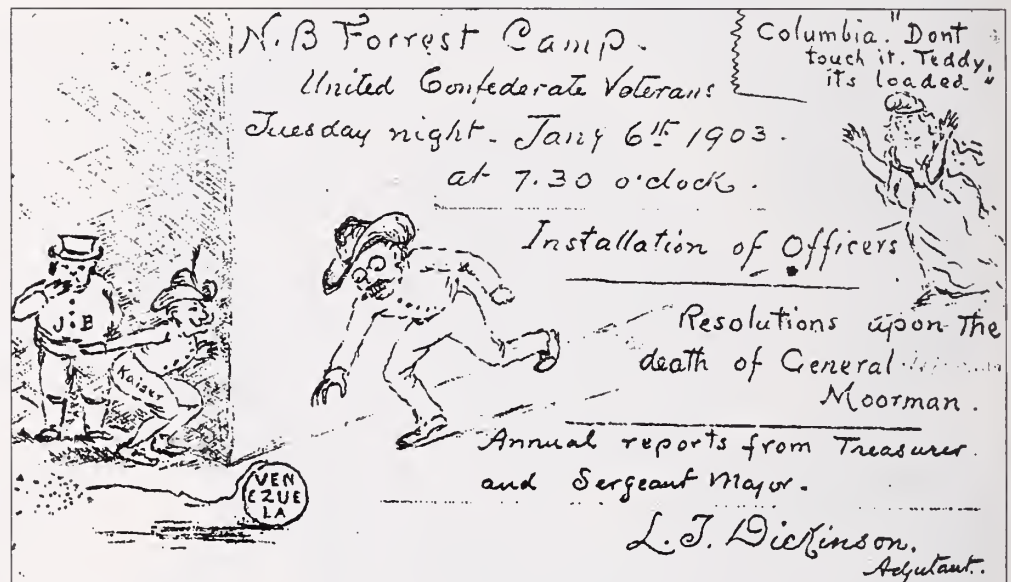 N.B Forrest Camp.
United Confederate Veterans
Tuesday night. Jany 6th 1903.
at 7.30 o'clock.
Columbia. "Dont
touch it. Teddy,
its loaded."
Installation of Officers
Resolutions upon The
death of General
Moorman.
Annual reports from Treasurer
and Sergeant Major.
L. T. Dickinson.
Adjutant.
J. B
Kaiser
VEN
EZUE
LA